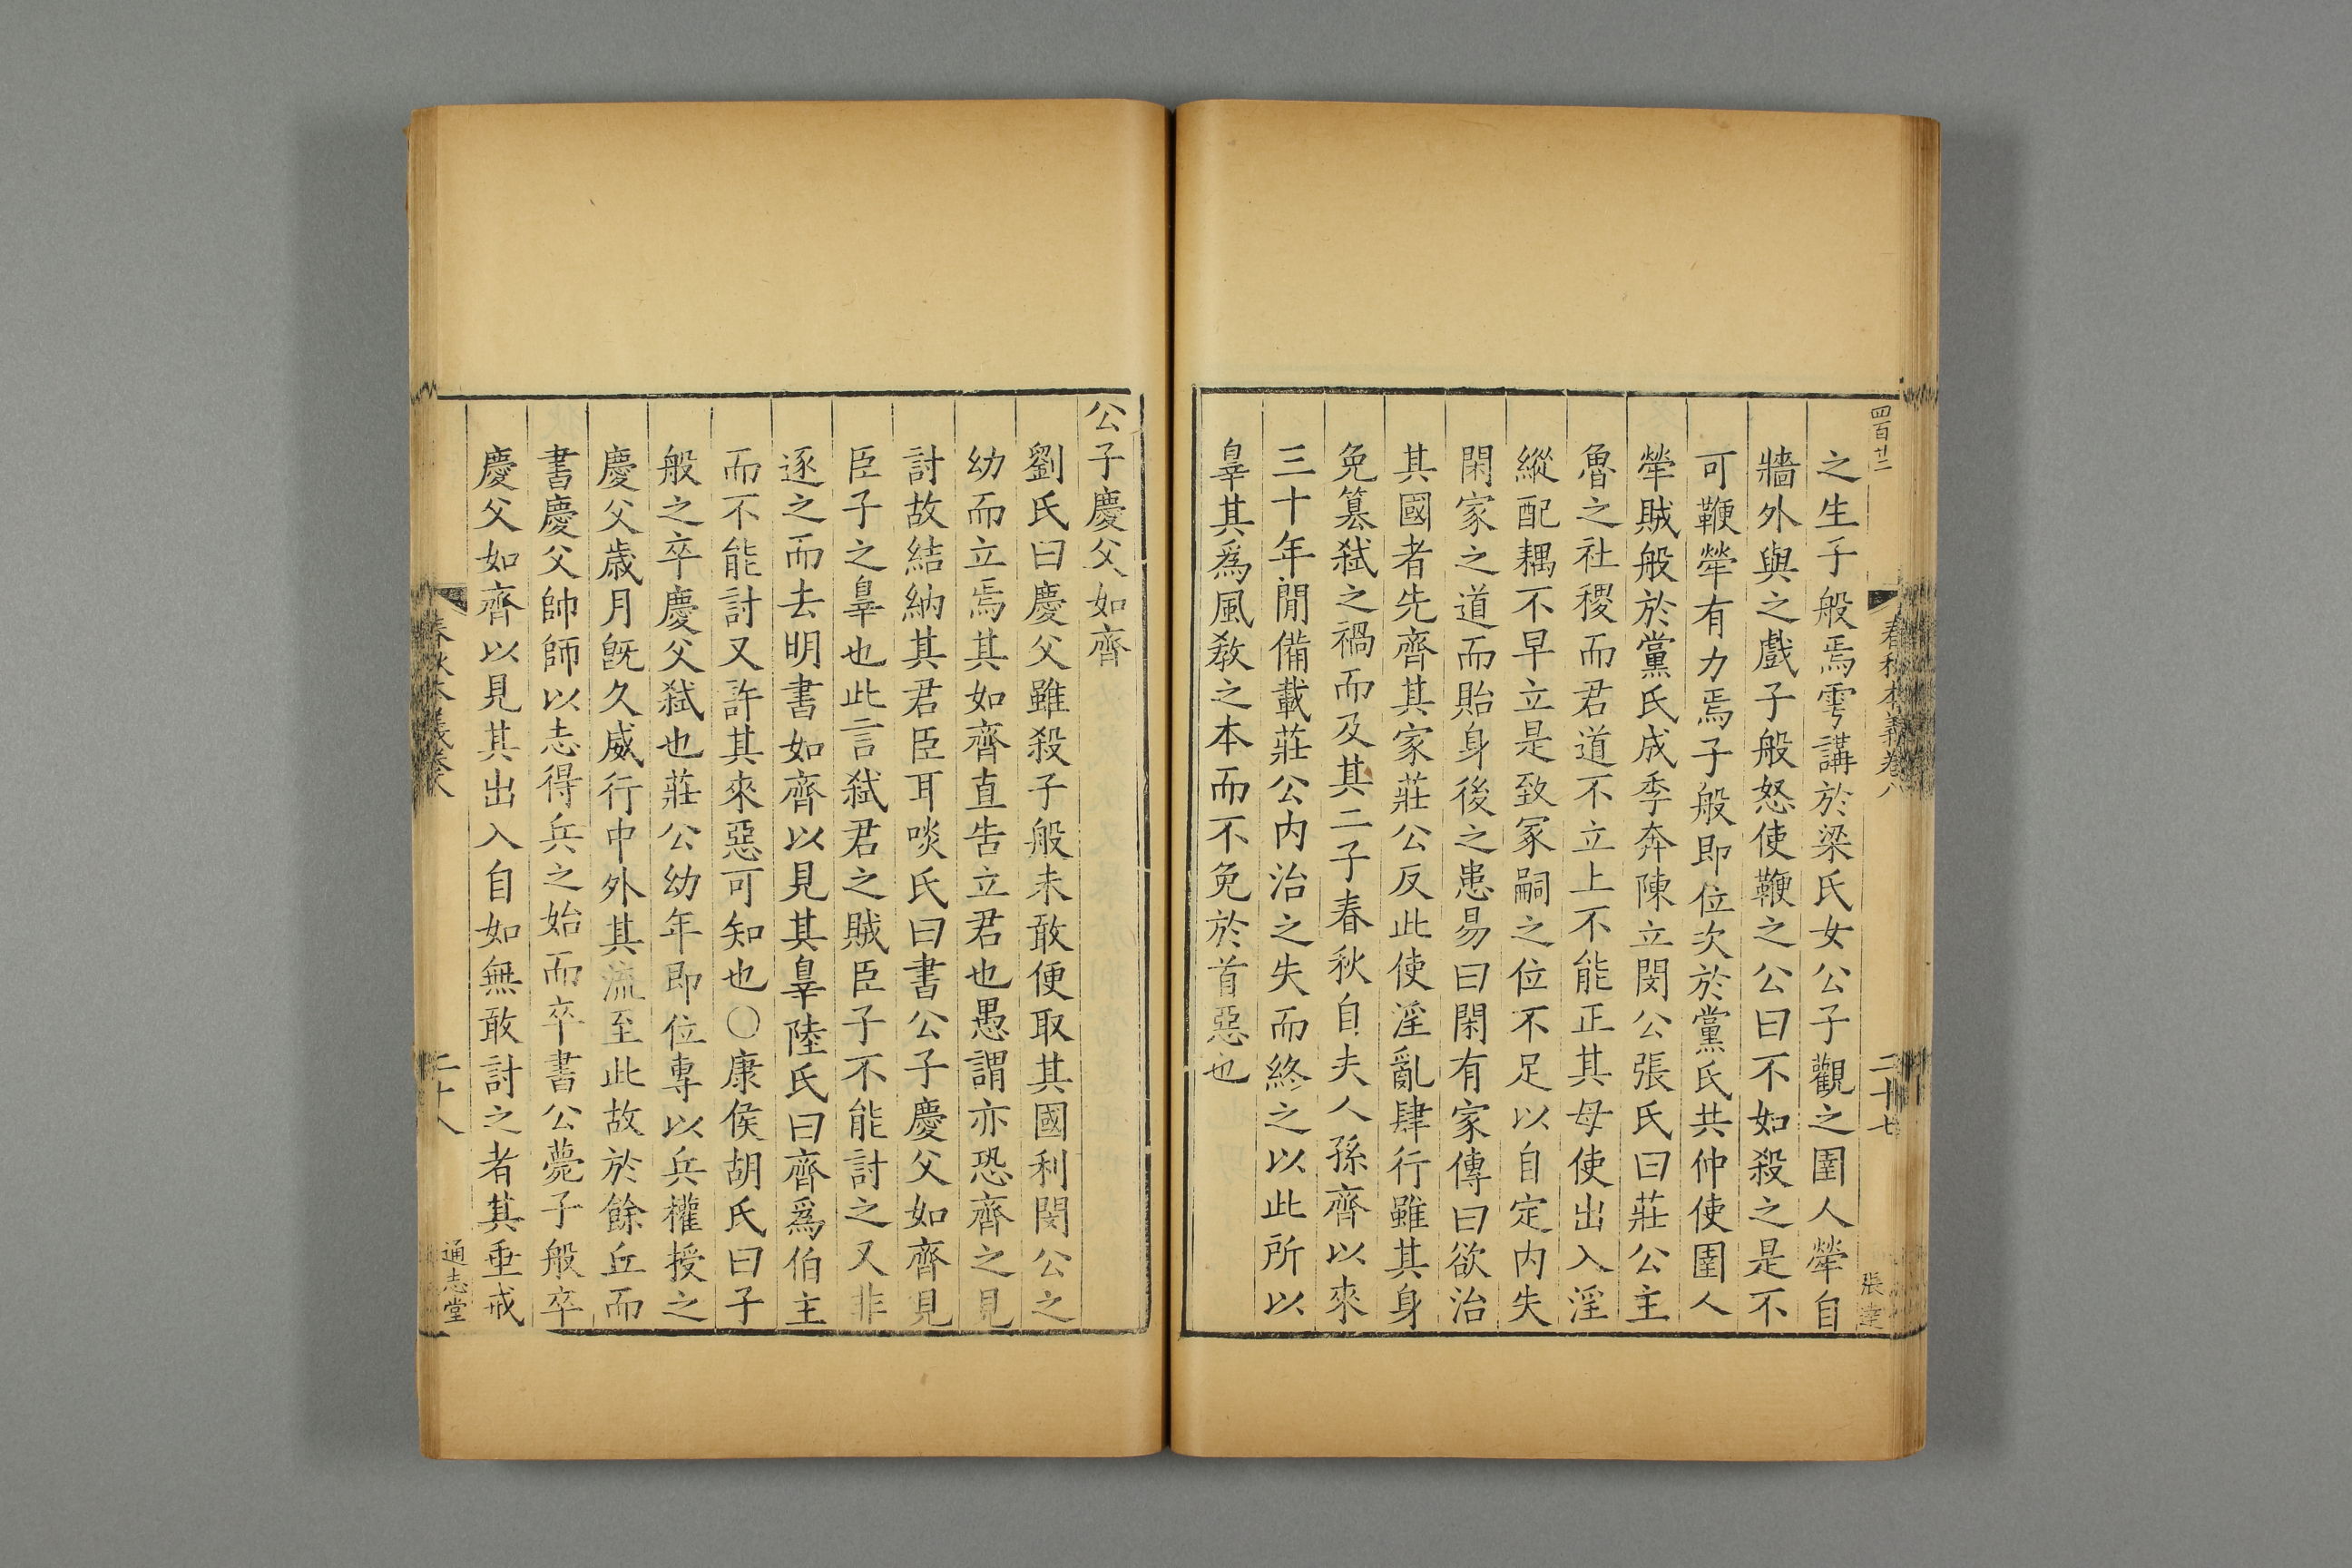 四百廿二
春秋本義卷八
二十七
張達
之生子般焉雩講於梁氏女公子觀之圉人犖自
牆外與之戲子般怒使鞭之公曰不如殺之是不
可鞭犖有力焉子般即位次於黨氏共仲使圉人
犖賊般於黨氏成季奔陳立閔公張氏曰莊公主
魯之社稷而君道不立上不能正其母使出入淫
縱配耦不早立是致冢嗣之位不足以自定內失
閑家之道而貽身後之患易曰閑有家傳曰欲治
其國者先齊其家莊公反此使淫亂肆行雖其身
免篡弑之禍而及其二子春秋自夫人孫齊以來
三十年閒備載莊公內治之失而終之以此所以
辠其爲風教之本而不免於首惡也
公子慶父如齊
劉氏曰慶父雖殺子般未敢便取其國利閔公之
幼而立焉其如齊直告立君也愚謂亦恐齊之見
討故結納其君臣耳啖氏曰書公子慶父如齊見
臣子之辠也此言弑君之賊臣子不能討之又非
逐之而去明書如齊以見其辠陸氏曰齊爲伯主
而不能討又許其來惡可知也〇康侯胡氏曰子
般之卒慶父弑也莊公幼年即位專以兵權授之
慶父歲月旣久威行中外其流至此故於餘丘而
書慶父帥師以志得兵之始而卒書公薨子般卒
慶父如齊以見其出入自如無敢討之者其垂戒
春秋本義卷八
二十八
通志堂